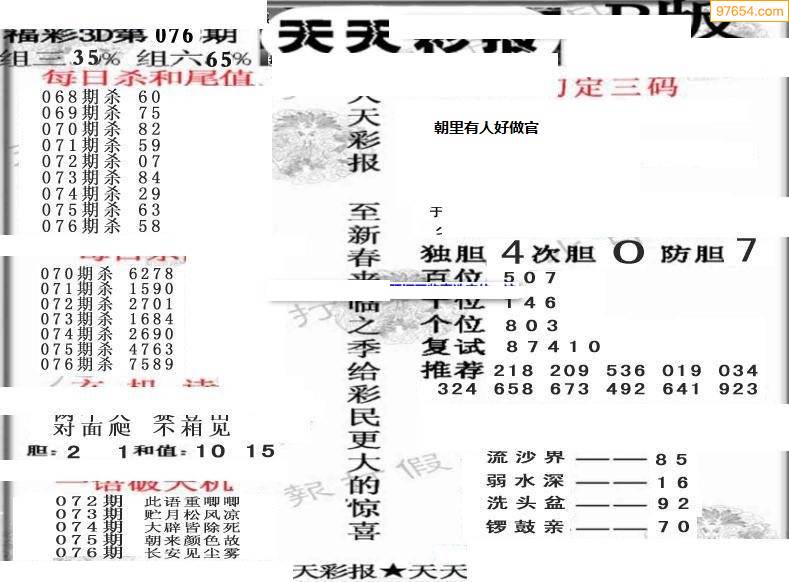 97654.com
福彩3D第076期
组三35% 组六65%
天天彩报
每日杀和尾值
068期杀 60
069期杀 75
070期杀 82
071期杀 59
072期杀 07
073期杀 84
074期杀 29
075期杀 63
076期杀 58
070期杀 6278
071期杀 1590
072期杀 2701
073期杀 1684
074期杀 2690
075期杀 4763
076期杀 7589
对面爬 不相见
胆:2 1和值:10 15
一语破天机
072期 此语重唧唧
073期 贮月松风凉
074期 大辟皆除死
075期 朝来颜色故
076期 长安见尘雾
天彩报
至新春来临之季给彩民更大的惊喜
天彩报★天天
定三码
朝里有人好做官
独胆4次胆0防胆7
百位 507
十位 146
个位 803
复试 87410
推荐 218 209 536 019 034
324 658 673 492 641 923
流沙界——85
弱水深——16
洗头盆——92
锣鼓亲——70